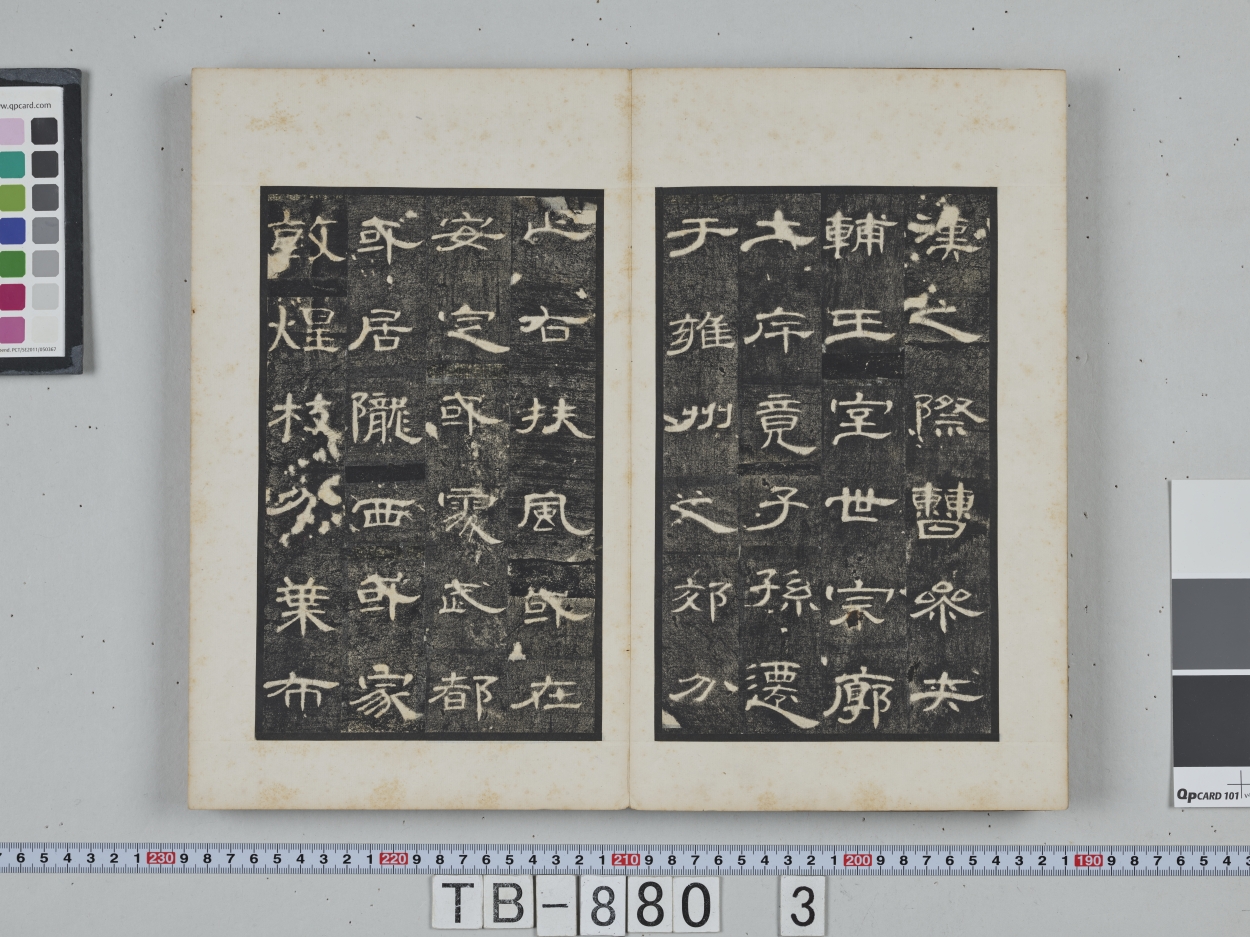 漢之際曹參夾
輔王室世宗廓
土斥竟子孫遷
于雍州之郊分
止右扶風或在
安定或處武都
或居隴西或家
敦煌枝分葉布
w.qpcard.com
QPCARD 101
6 5 4 3 2 1 230 9 8 7 6 5 4 3 2 1 220 9 8 7 6 5 4 3 2 1 210 9 8 7 6 5 4 3 2 1 200 9 8 7 6 5 4 3 2 1 190 9 8 7 6 5 4 3
TB-880 3